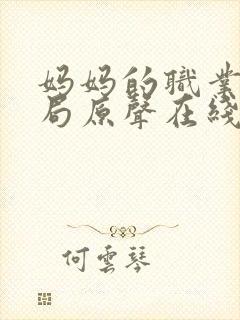 媽媽的職業
局原聲在綫
何雲琴